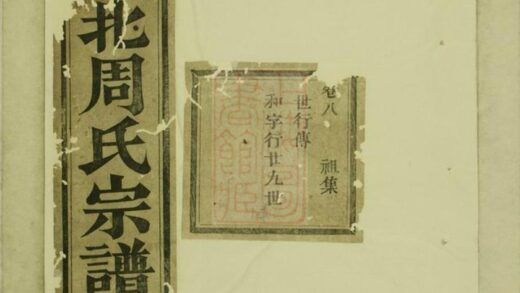 北周氏宗譜
卷八 祖集
世行傳
和字行廿九世